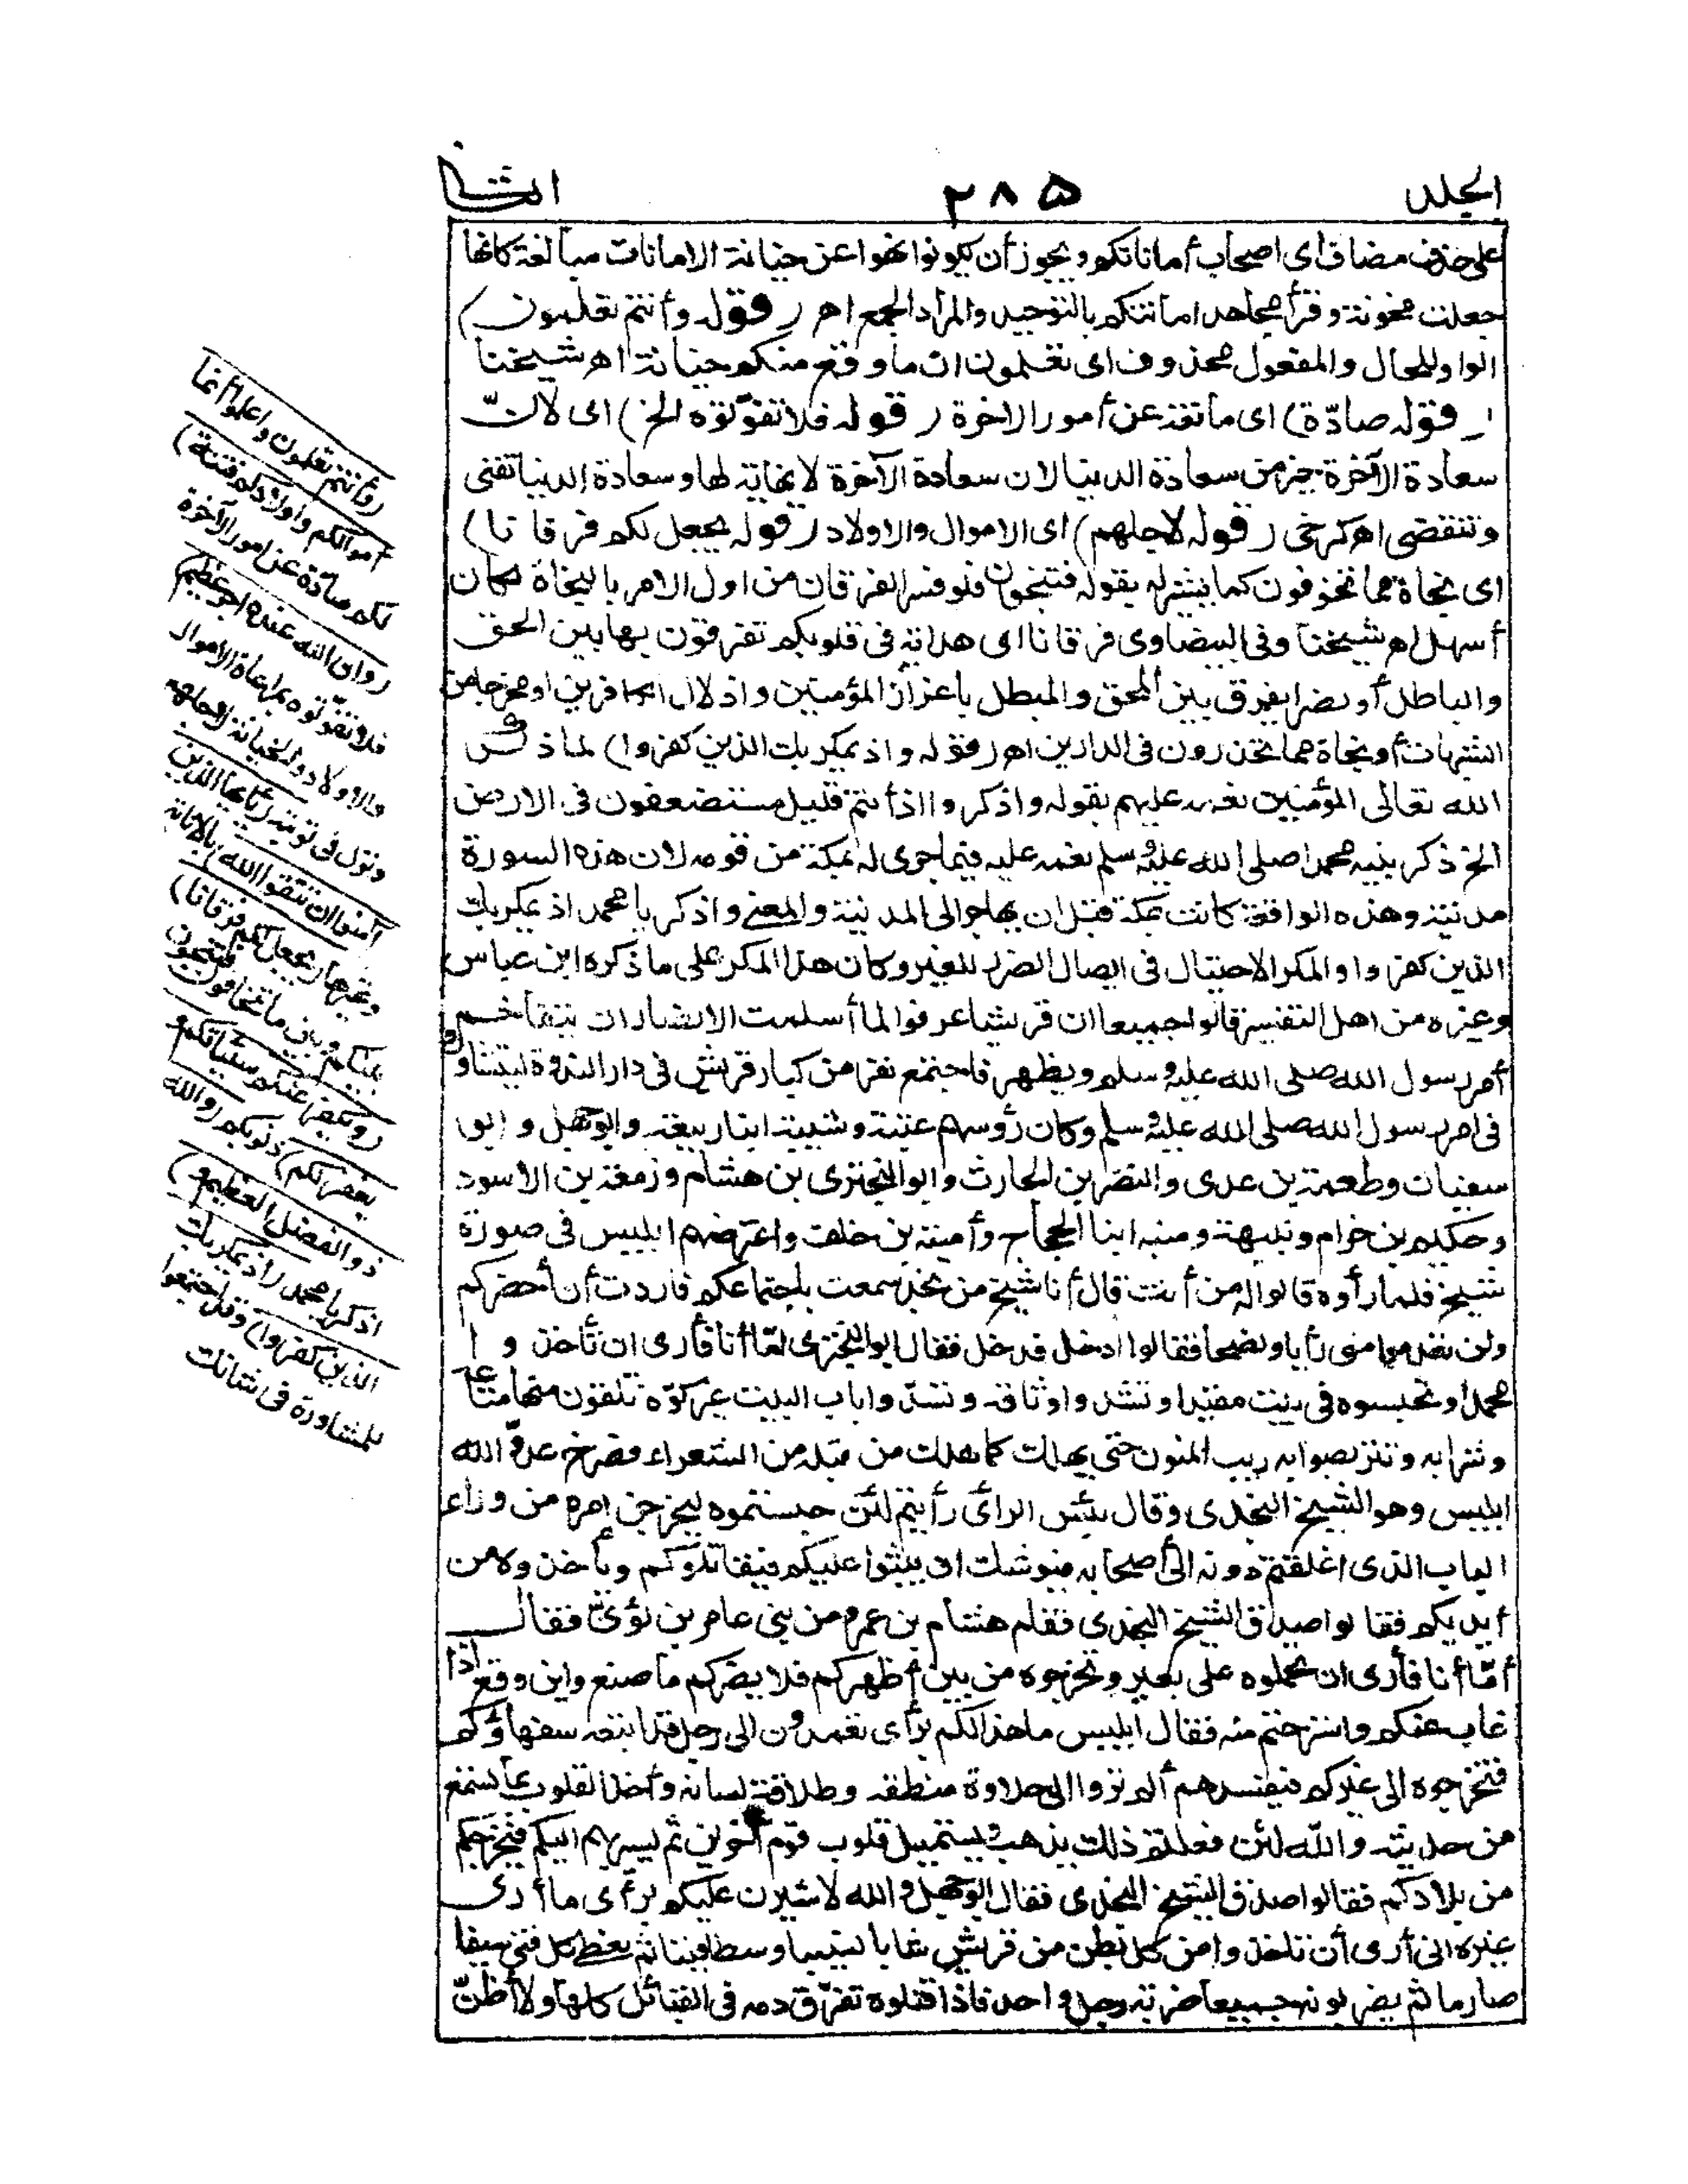 الجلد ٢٨٥ الثاني
على حذف مضاف أى اصحاب أماناتكم ويجوز أن يكونوا نهوا عن خيانة الامانات مبالغة كانها
جعلت مخونة وقرأ مجاهد امانتكم بالتوحيد والمراد الجمع اهـ (قوله وأنتم تعلمون)
الواو للحال والمفعول محذوف اى تعلمون ان ما وقع منكم خيانة اهـ شيخنا
(قوله صادّة) اى مانعة عن أمور الاخرة (قوله فلا تفوّتوه الخ) اى لانّ
سعادة الآخرة خير من سعادة الدنيا لان سعادة الآخرة لا نهاية لها وسعادة الدنيا تفنى
وتنقضى اهـ كرخى (قوله لاجلهم) اى الاموال والاولاد (قوله يجعل لكم فرقانا)
اى نجاة مما تخوفون كما يشير له بقوله فتنجون فلو فسر الفرقان من اول الامر بالنجاة لكان
أسهل اهـ شيخنا وفى البيضاوى فرقانا اى هداية فى قلوبكم تفرقون بها بين الحق
والباطل أو نصرا يفرق بين المحق والمبطل باعزاز المؤمنين واذلال الكافرين او مخرجا من
الشبهات أو نجاة مما تحذرون فى الدارين اهـ (قوله واذ يمكر بك الذين كفروا) لما ذكر
الله تعالى المؤمنين نعمه عليهم بقوله واذكروا اذ أنتم قليل مستضعفون فى الارض
الخ ذكر نبيه محمدا صلى الله عليه وسلم نعمه عليه فيما جرى له بمكة من قومه لان هذه السورة
مدنية وهذه الواقعة كانت بمكة قبل ان يهاجر الى المدينة والمعنى واذكر يا محمد اذ يمكر بك
الذين كفروا والمكر الاحتيال فى ايصال الضرر للغير وكان هذا المكر على ما ذكره ابن عباس
وغيره من اهل التفسير قالوا جميعا ان قريشا عرفوا لما أسلمت الانصار ان يتفاخم
أمر رسول الله صلى الله عليه وسلم ويظهر فاجتمع نفر من كبار قريش فى دار الندوة ليتشاوروا
فى امر رسول الله صلى الله عليه وسلم وكان رؤسهم عتبة وشيبة ابنا ربيعة وابوجهل وابو
سفيان وطعمة بن عدى والنضر بن الحارث وابوالبخترى بن هشام وزمعة بن الاسود
وحكيم بن حزام ونبيهة ومنبه ابنا الحجاج وأمية بن خلف واعترضهم ابليس فى صورة
شيخ فلما رأوه قالوا له من أنت قال أنا شيخ من نجد سمعت باجتماعكم فاردت أن أحضركم
ولن تعدموا منى رأيا ونصحا فقالوا ادخل فدخل فقال ابوالبخترى امّا أنا فأرى ان تأخذوا
محمدا وتحبسوه فى بيت مقيدا وتشدوا وثاقه وتسدّوا باب البيت غير كوّة تلقون منها طعامه
وشرابه وتتربصوا به ريب المنون حتى يهلك كما هلك من قبله من الشعراء فصرخ عدوّ الله
ابليس وهو الشيخ النجدى وقال بئس الرأى رأيتم لئن حبستموه ليخرجن امره من وراء
الباب الذى اغلقتم دونه الى أصحابه فيوشك ان يثبوا عليكم فيقاتلوكم ويأخذوه من
أيديكم فقالوا صدق الشيخ النجدى فقام هشام بن عمرو من بنى عامر بن لؤىّ فقال
أمّا أنا فأرى ان تحملوه على بعير وتخرجوه من بين أظهركم فلا يضركم ما صنع واين وقع اذا
غاب عنكم واسترحتم منه فقال ابليس ما هذا لكم برأى تعمدون الى رجل قد اتبعه سفهاؤكم
فتخرجوه الى غيركم فيفسدهم ألم تروا الى حلاوة منطقه وطلاقة لسانه وأخذ القلوب بما تسمع
من حديثه والله لئن فعلتم ذلك يذهب ويستميل قلوب قوم آخرين ثم يسير بهم اليكم فيخرجكم
من بلادكم فقالوا صدق الشيخ النجدى فقال ابوجهل والله لاشيرن عليكم برأى ما أرى
غيره انى أرى أن تاخذوا من كل بطن من قريش شابا نسيبا وسطا فينا ثم يعطى كل فتى سيفا
صارما ثم يضربونه جميعا ضربة رجل واحد فاذا قتلوه تفرّق دمه فى القبائل كلها ولا أظنّ
(وأنتم تعلمون واعلموا أنما
أموالكم واولادكم فتنة)
لكم صادّة عن امور الآخرة
(وان الله عنده اجر عظيم)
فلا تفوّتوه بمراعاة الاموال
والاولاد والخيانة لاجلهم
ونزل فى توبته (يأيها الذين
آمنوا ان تتقوا الله) بالانابة
وغيرها (يجعل لكم فرقانا)
بينكم وبين ما تخافون فتنجون
(ويكفر عنكم سيئاتكم و
يغفر لكم) ذنوبكم (والله
ذو الفضل العظيم و)
اذكر يا محمد (اذ يمكر بك
الذين كفروا) وقد اجتمعوا
للمشاورة فى شانك